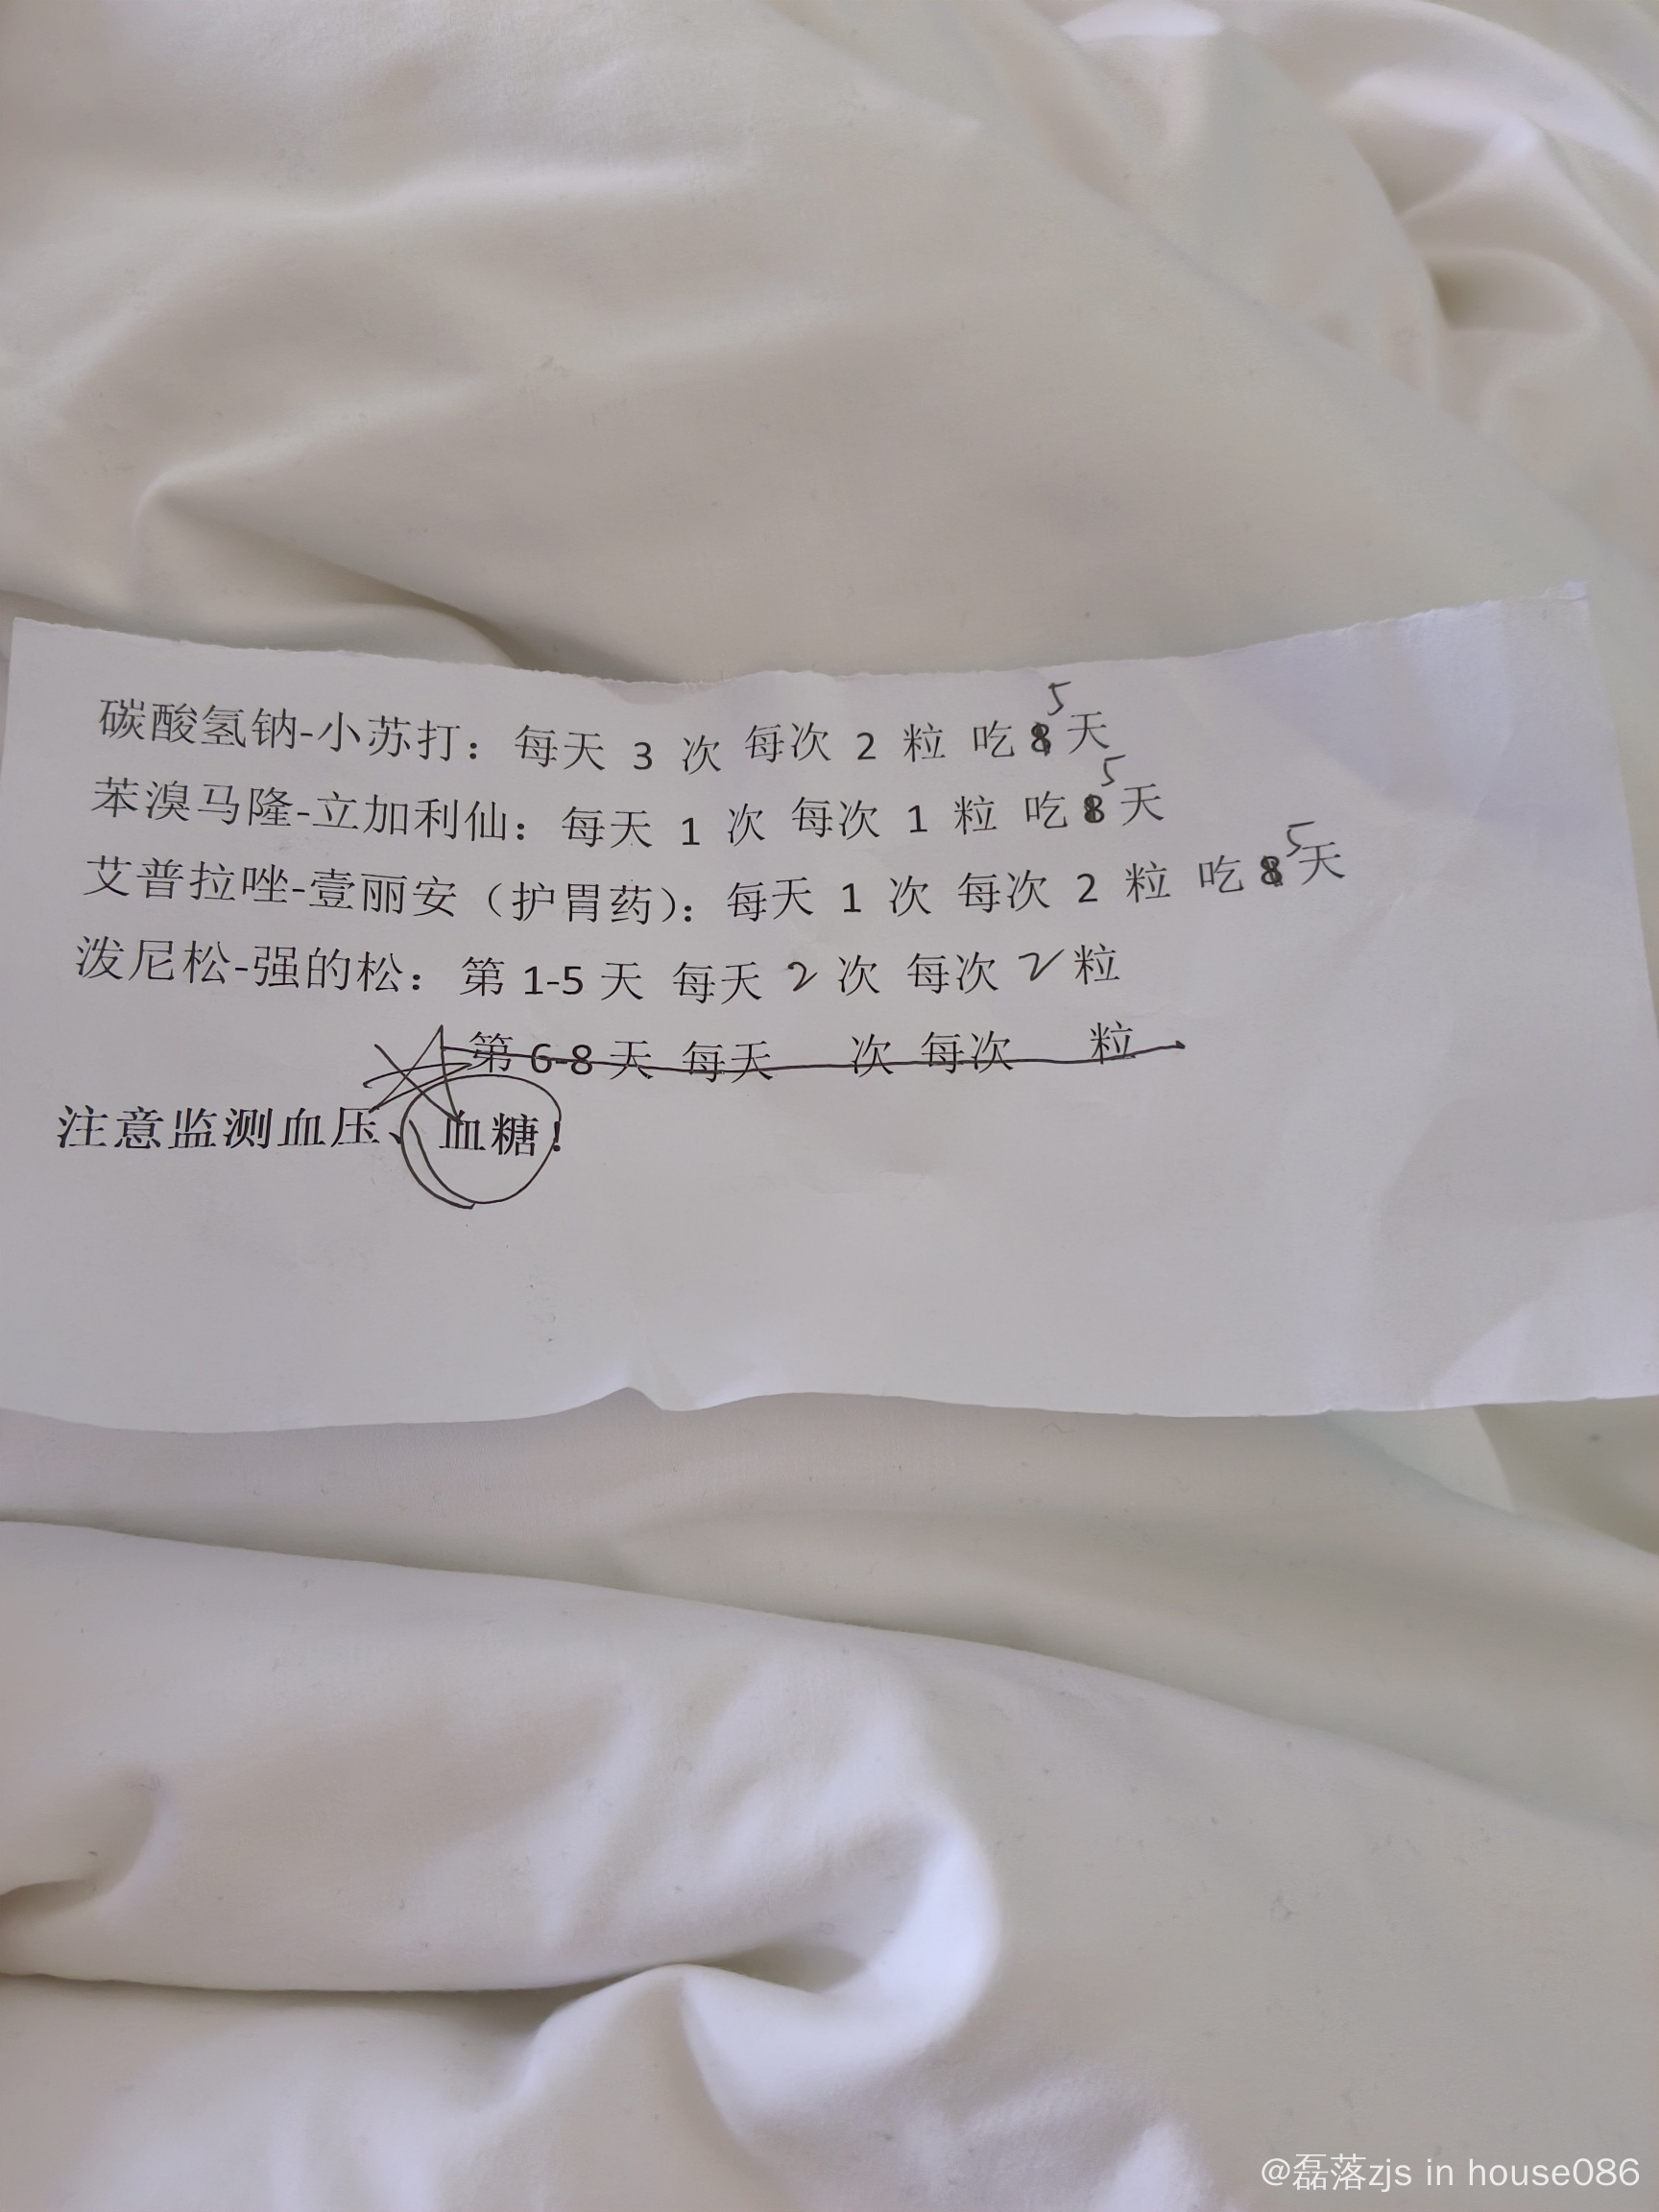 碳酸氢钠-小苏打：每天 3 次 每次 2 粒 吃 8 5 天
苯溴马隆-立加利仙：每天 1 次 每次 1 粒 吃 8 5 天
艾普拉唑-壹丽安（护胃药）：每天 1 次 每次 2 粒 吃 8 5 天
泼尼松-强的松：第 1-5 天 每天 2 次 每次 2 粒
第 6-8 天 每天 次 每次 粒
注意监测血压、血糖！
@磊落zjs in house086